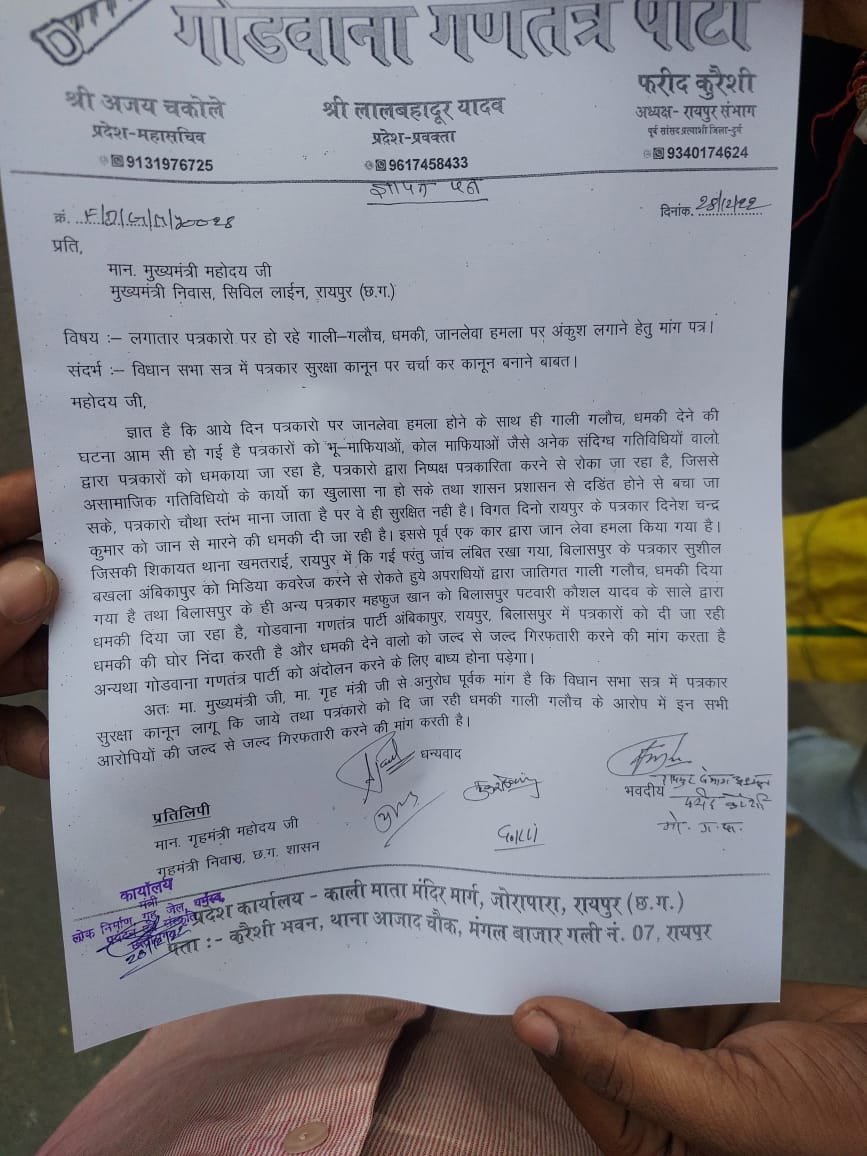 गोंडवाना गणतंत्र पार्टी
श्री अजय चकोले
प्रदेश-महासचिव
9131976725
श्री लालबहादूर यादव
प्रदेश-प्रवक्ता
9617458433
फरीद कुरैशी
अध्यक्ष- रायपुर संभाग
पूर्व सांसद प्रत्याशी जिला-दुर्ग
9340174624
ज्ञापन पत्र
क्रं.
दिनांक. 28/12/22
प्रति,
मान. मुख्यमंत्री महोदय जी
मुख्यमंत्री निवास, सिविल लाईन, रायपुर (छ.ग.)
विषय :– लगातार पत्रकारो पर हो रहे गाली–गलौच, धमकी, जानलेवा हमला पर अंकुश लगाने हेतु मांग पत्र।
संदर्भ :– विधान सभा सत्र में पत्रकार सुरक्षा कानून पर चर्चा कर कानून बनाने बाबत।
महोदय जी,
ज्ञात है कि आये दिन पत्रकारो पर जानलेवा हमला होने के साथ ही गाली गलौच, धमकी देने की
घटना आम सी हो गई है पत्रकारों को भू–माफियाओं, कोल माफियाओं जैसे अनेक संदिग्ध गतिविधियों वालो
द्वारा पत्रकारों को धमकाया जा रहा है, पत्रकारो द्वारा निष्पक्ष पत्रकारिता करने से रोका जा रहा है, जिससे
असामाजिक गतिविधियो के कार्यो का खुलासा ना हो सके तथा शासन प्रशासन से दडिंत होने से बचा जा
सके, पत्रकारो चौथा स्तंभ माना जाता है पर वे ही सुरक्षित नही है। विगत दिनो रायपुर के पत्रकार दिनेश चन्द्र
कुमार को जान से मारने की धमकी दी जा रही है। इससे पूर्व एक कार द्वारा जान लेवा हमला किया गया है।
जिसकी शिकायत थाना खमतराई, रायपुर में कि गई परंतु जांच लंबित रखा गया, बिलासपुर के पत्रकार सुशील
बखला अंबिकापुर को मिडिया कवरेज करने से रोकते हुये अपराधियों द्वारा जातिगत गाली गलौच, धमकी दिया
गया है तथा बिलासपुर के ही अन्य पत्रकार महफुज खान को बिलासपुर पटवारी कौशल यादव के साले द्वारा
धमकी दिया जा रहा है, गोडवाना गणतंत्र पार्टी अंबिकापुर, रायपुर, बिलासपुर में पत्रकारों को दी जा रही
धमकी की घोर निंदा करती है और धमकी देने वालो को जल्द से जल्द गिरफतारी करने की मांग करता है
अन्यथा गोडवाना गणतंत्र पार्टी को अंदोलन करने के लिए बाध्य होना पड़ेगा।
अतः मा. मुख्यमंत्री जी, मा. गृह मंत्री जी से अनुरोध पूर्वक मांग है कि विधान सभा सत्र में पत्रकार
सुरक्षा कानून लागू कि जाये तथा पत्रकारो को दि जा रही धमकी गाली गलौच के आरोप में इन सभी
आरोपियों की जल्द से जल्द गिरफतारी करने की मांग करती है।
धन्यवाद
भवदीय
प्रतिलिपी
मान. गृहमंत्री महोदय जी
गृहमंत्री निवास, छ.ग. शासन
कार्यालय
मंत्री
लोक निर्माण, गृह, जेल, धर्मस्व,
प्रदेश कार्यालय - काली माता मंदिर मार्ग, जोरापारा, रायपुर (छ.ग.)
पता :- कुरैशी भवन, थाना आजाद चौक, मंगल बाजार गली नं. 07, रायपुर